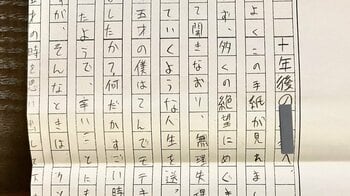 十年後の へ、
よくこの手紙が見れま
、多くの絶望にめぐ
て開きなおり、無理
ていくような人生を送
五才の僕はてんでモテ
したか?何だかすごい時
たようで、幸いこ
すが、そんなときは
才の時を思い出して